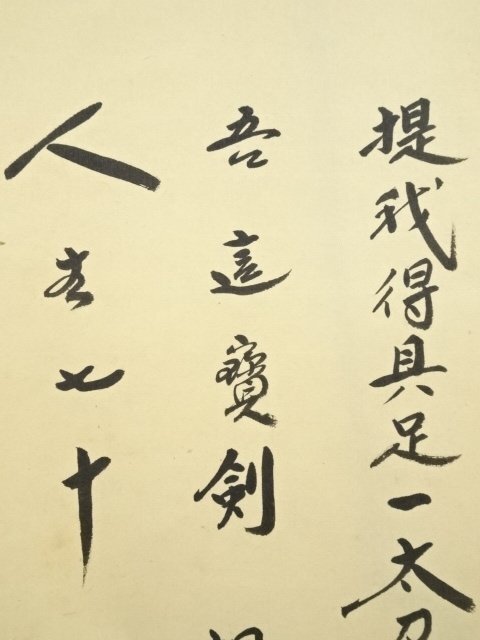 提我得具足一太刀
吾這寶剣
人生七十